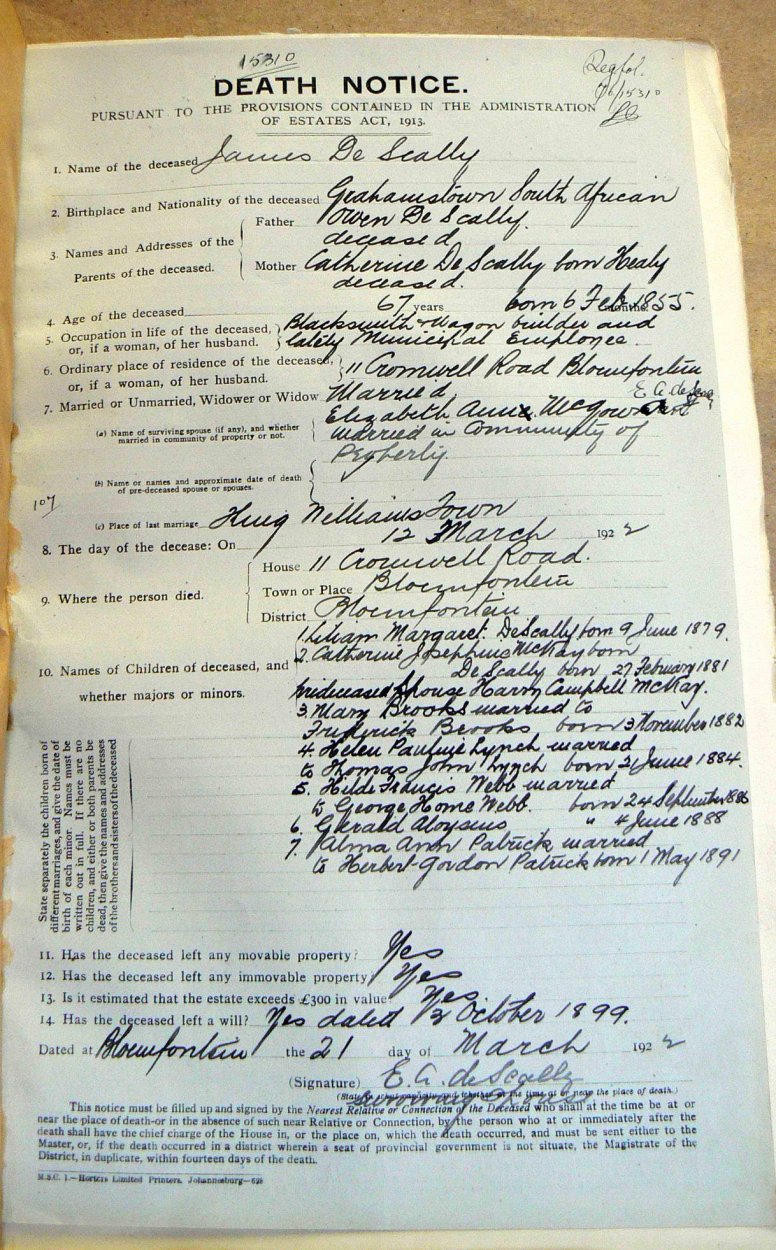 15310
Regfol.
76/15310
DEATH NOTICE.
PURSUANT TO THE PROVISIONS CONTAINED IN THE ADMINISTRATION
OF ESTATES ACT, 1913.
1. Name of the deceased James De Scally
2. Birthplace and Nationality of the deceased Grahamstown South African
3. Names and Addresses of the Parents of the deceased.
Father Owen De Scally.
deceased
Mother Catherine De Scally born Healy
deceased.
4. Age of the deceased 67 years born 6 Feb 1855. months
5. Occupation in life of the deceased, Blacksmith & Wagon builder and
or, if a woman, of her husband. lately Municipal Employee.
6. Ordinary place of residence of the deceased, 11 Cromwell Road Bloemfontein
or, if a woman, of her husband.
7. Married or Unmarried, Widower or Widow Married
E. A. de Scally
(a) Name of surviving spouse (if any), and whether Elizabeth Ann McGowan
married in community of property or not. married in Community of
Property.
(b) Name or names and approximate date of death
of pre-deceased spouse or spouses.
107
(c) Place of last marriage King Williams Town
8. The day of the decease: On 12 March 1922
9. Where the person died.
House 11 Cromwell Road.
Town or Place Bloemfontein
District Bloemfontein
10. Names of Children of deceased, and
whether majors or minors.
State separately the children born of
different marriages, and give the date of
birth of each minor. Names must be
written out in full. If there are no
children, and either or both parents be
dead, then give the names and addresses
of the brothers and sisters of the deceased
1. Liliam Margaret. De Scally born 9 June 1879.
2. Catherine Josephine McKay born
De Scally born 27 February 1881
predeceased spouse Harry Campbell McKay.
3. Mary Brooks married to
Friderick Brooks born 3 November 1882
4. Helen Pauline Lynch married
to Thomas John Lynch born 21 June 1884.
5. Hilda Francis Webb married
to George Home Webb. born 24 September 1886
6. Gerald Aloysius " 4 June 1888
7. Alma Ann Patrick married
to Herbert Gordon Patrick born 1 May 1891
11. Has the deceased left any movable property? Yes
12. Has the deceased left any immovable property? Yes
13. Is it estimated that the estate exceeds £300 in value? Yes
14. Has the deceased left a will? Yes dated 2 October 1899.
Dated at Bloemfontein the 21 day of March 1922
(Signature) E. A. de Scally
at the time at or near the place of death.)
This notice must be filled up and signed by the Nearest Relative or Connection of the Deceased who shall at the time be at or
near the place of death-or in the absence of such near Relative or Connection, by the person who at or immediately after the
death shall have the chief charge of the House in, or the place on, which the death occurred, and must be sent either to the
Master, or, if the death occurred in a district wherein a seat of provincial government is not situate, the Magistrate of the
District, in duplicate, within fourteen days of the death.
M.S.C. 1.—Horters Limited Printers, Johannesburg—628